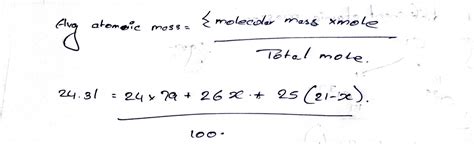 Avg atomeic mass = Σ molecular mass x mole
Total mole.
24.31 = 24 x 79 + 26 x + 25 (21-x).
100.